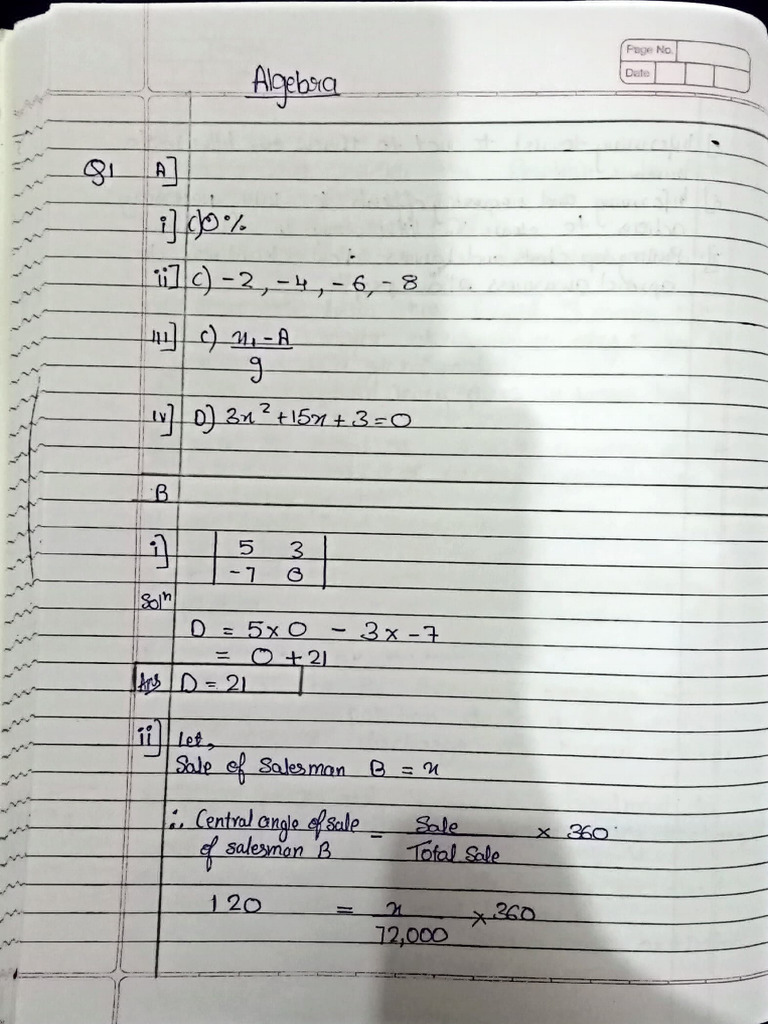 Page No.
Date
Algebra
Q1 A]
i] C) 0%
ii] C) -2, -4, -6, -8
iii] C) x₁ - A
g
iv] D) 3x² + 15x + 3 = 0
B
i] | 5 3 |
| -7 0 |
Solⁿ
D = 5 x 0 - 3 x -7
= 0 + 21
Ans D = 21
ii] Let,
Sale of Salesman B = x
∴ Central angle of sale = Sale x 360
of salesman B Total Sale
120 = x x 360
72,000